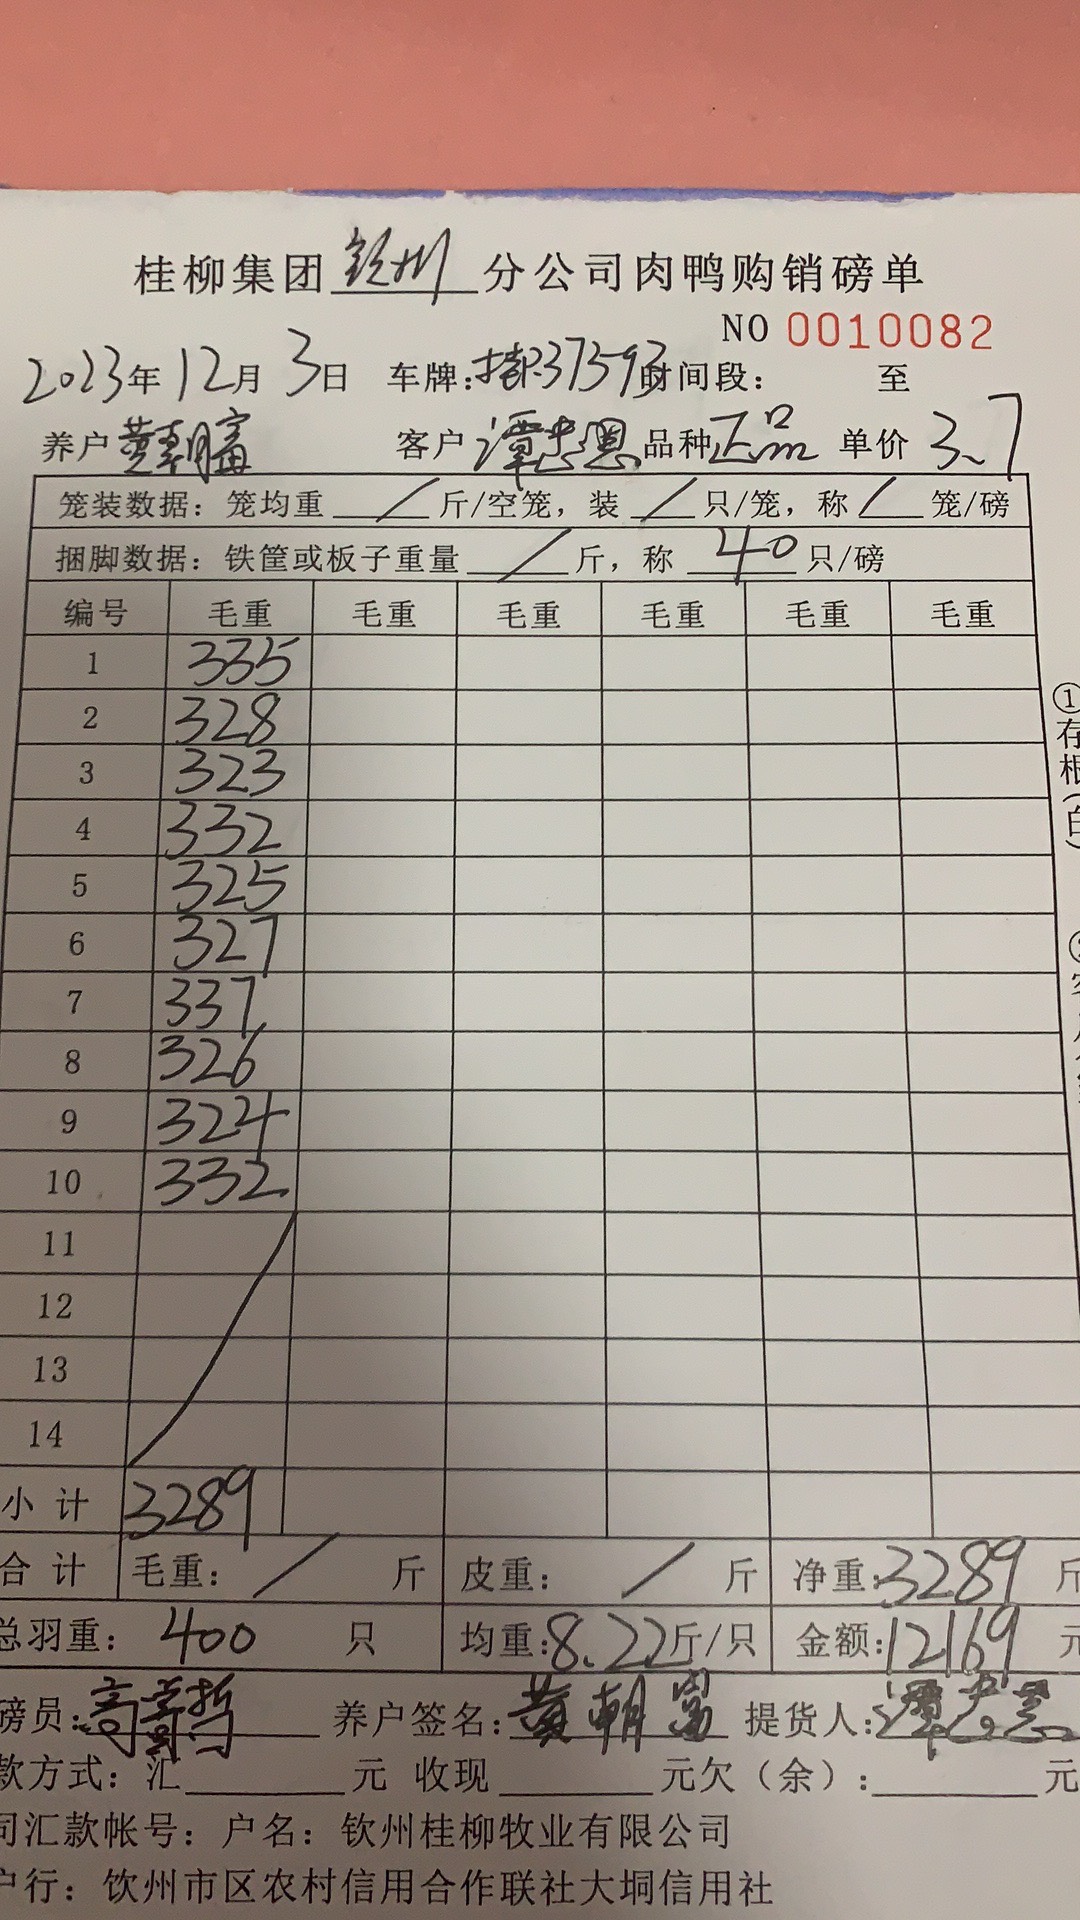 桂柳集团钦州分公司肉鸭购销磅单
NO 0010082
2023年12月3日 车牌:桂R37593时间段: 至
养户黄朝富 客户谭忠恩品种正品单价3.7
笼装数据:笼均重/斤/空笼,装/只/笼,称/笼/磅
捆脚数据:铁筐或板子重量/斤,称40只/磅
编号 毛重 毛重 毛重 毛重 毛重 毛重
1 335
2 328
3 323
4 332
5 325
6 327
7 337
8 326
9 324
10 332
11
12
13
14
小计 3289
合计 毛重:/斤 皮重:/斤 净重:3289斤
总羽重:400只 均重:8.22斤/只 金额:12169元
磅员: 养户签名:黄朝富 提货人:谭忠恩
款方式:汇 元 收现 元欠(余): 元
司汇款帐号:户名:钦州桂柳牧业有限公司
户行:饮州市区农村信用合作联社大垌信用社
①存根(白)